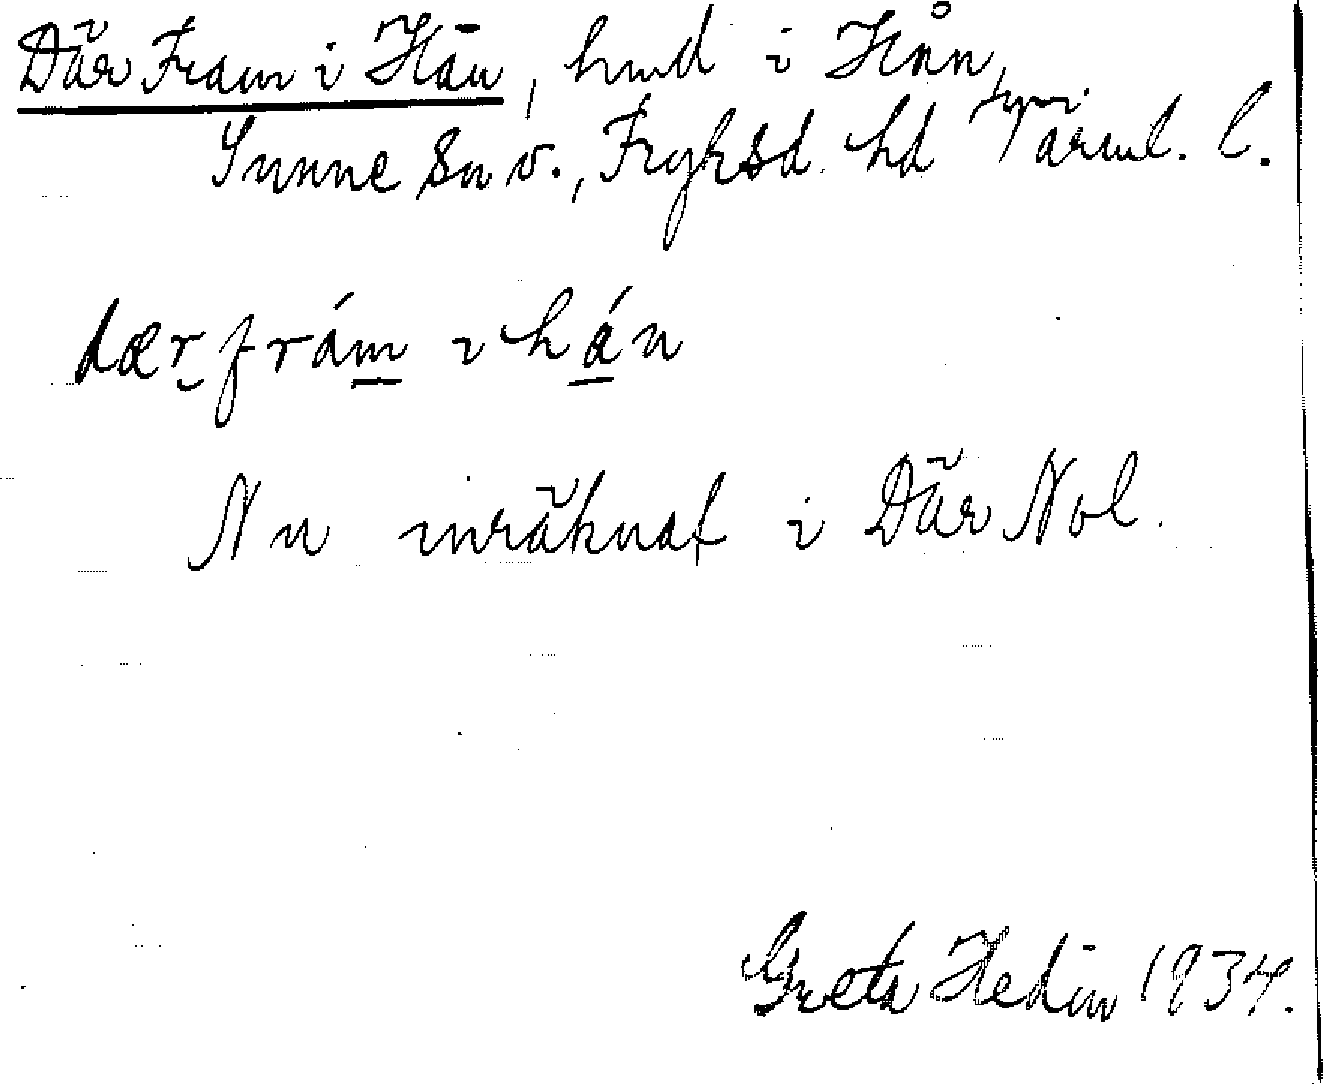 Där Fram i Hån, hmd i Hån,
Sunne sn v., Fryksd. hd Värml. l.
dær frám i hán
Nu inräknat i Där Nol.
Greta Hedin 1934.